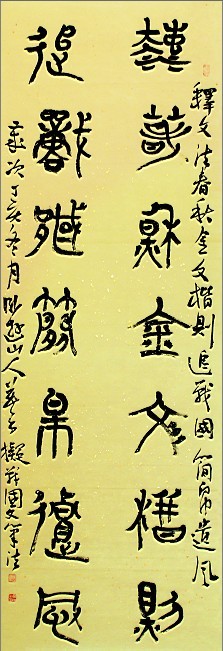 釋文法春秋金文楷則追戰國簡帛遺風
法春秋金文楷則
追戰國簡帛遺風
歲次丁亥冬月卧遊山人擬戰國文筆法